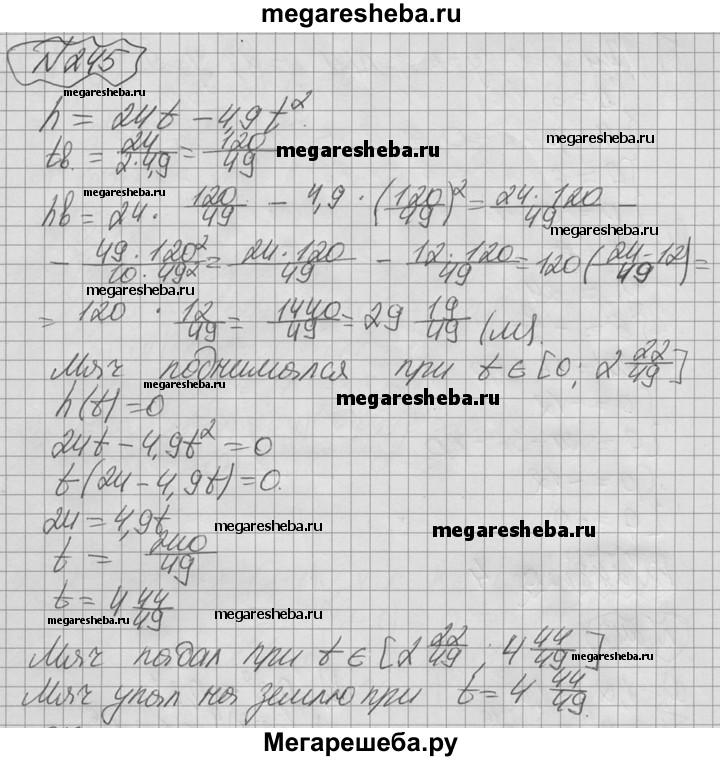 megaresheba.ru
N245
megaresheba.ru
h = 24t − 4,9t².
megaresheba.ru
tв. = 24/(2·4,9) = 120/49
megaresheba.ru
megaresheba.ru
hв = 24 · 120/49 − 4,9 · (120/49)² = 24·120/49 −
megaresheba.ru
− 49·120²/(10·49²) = 24·120/49 − 12·120/49 = 120(24−12/49) =
megaresheba.ru
= 120 · 12/49 = 1440/49 = 29 19/49 (м).
Мяч поднимался при t ∈ [0; 2 22/49]
megaresheba.ru
h(t) = 0
megaresheba.ru
24t − 4,9t² = 0
t(24 − 4,9t) = 0.
24 = 4,9t
megaresheba.ru
megaresheba.ru
t = 240/49
t = 4 44/49
megaresheba.ru
megaresheba.ru
Мяч падал при t ∈ [2 22/49; 4 44/49]
megaresheba.ru
Мяч упал на землю при t = 4 44/49.
Мегарешеба.ру